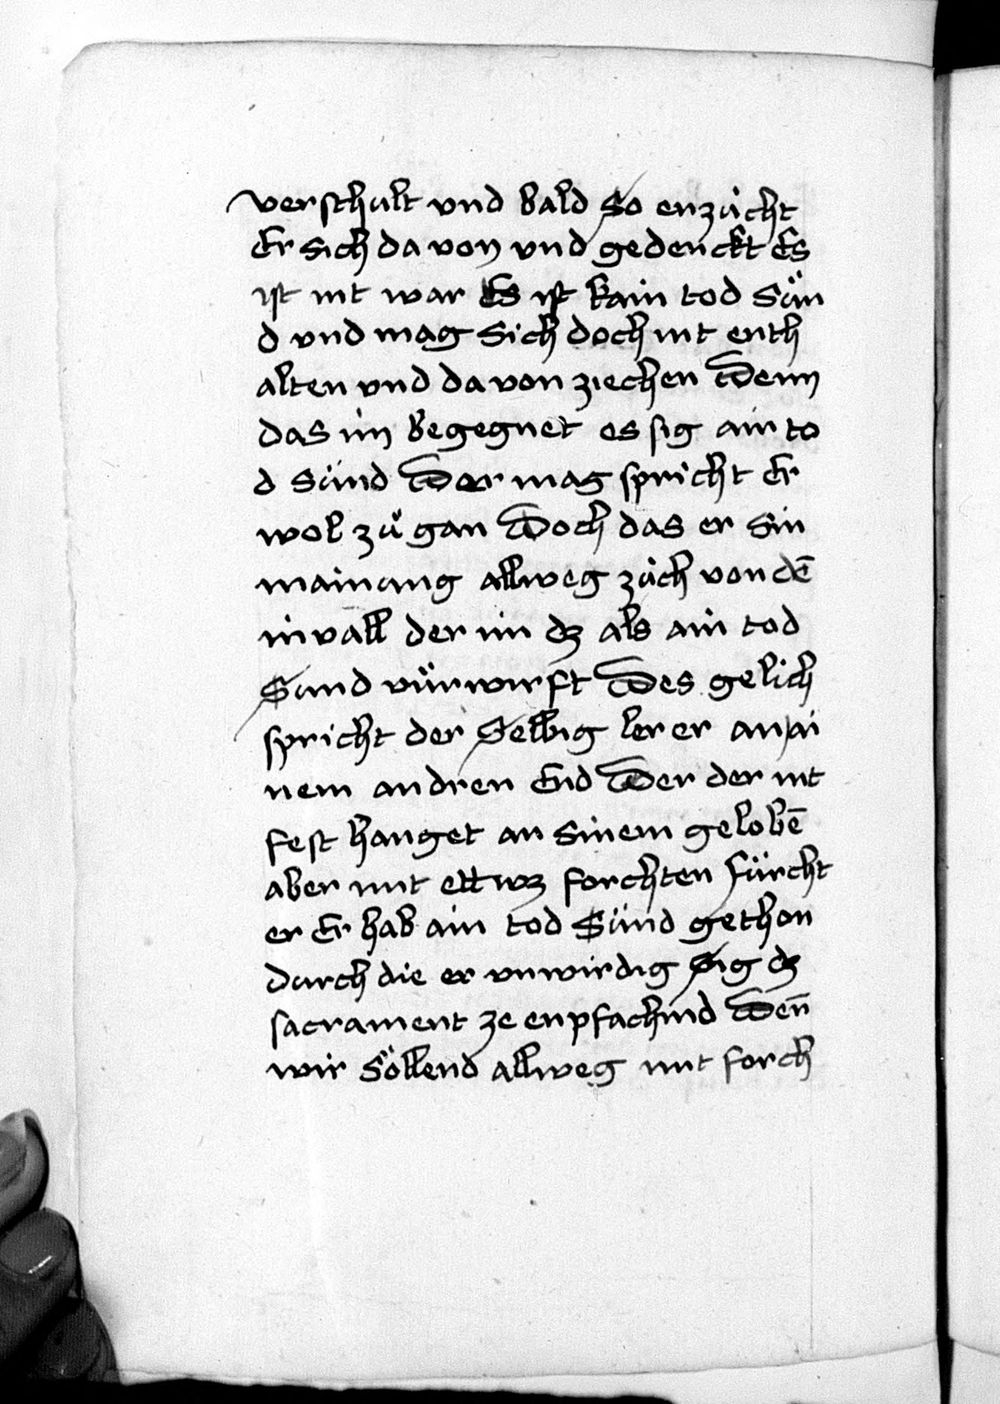 verschult vnd bald So enzúcht
Er sich da von vnd gedenckt Es
ist nit war Es ist kain tod Sün
d vnd mag Sich doch nit enth
alten vnd da von ziechen Wenn
das im begegnet es sig ain to
d sünd Der mag spricht Er
wol zů gan Doch das er Sin
mainung allweg züch von dē
invall der im dz als ain tod
Sund vürwirft Des gelich
spricht der Selbig lerer an ai
nem andren End Wer der nit
fest hanget an Sinem gelobē
aber mit ettwz forchten fürcht
er Er hab ain tod Sünd gethon
durch die er vnwirdig Sig dz
sacrament ze enpfachind Wen̄
wir Söllend allweg mit forch